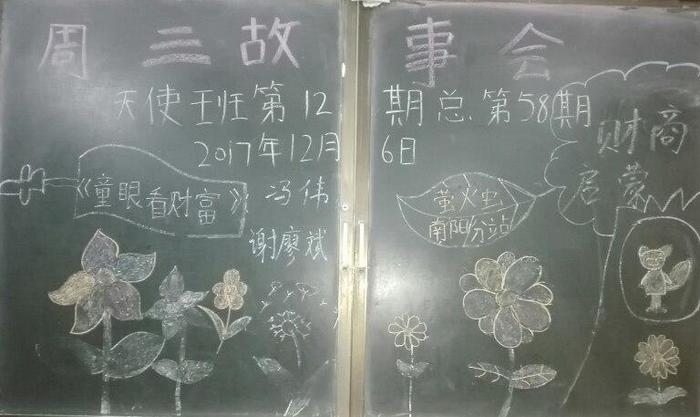 周三故事会
天使班第12期总第58期
2017年12月6日
《童眼看财富》
冯伟
谢廖斌
萤火虫
南阳分站
财商
启蒙